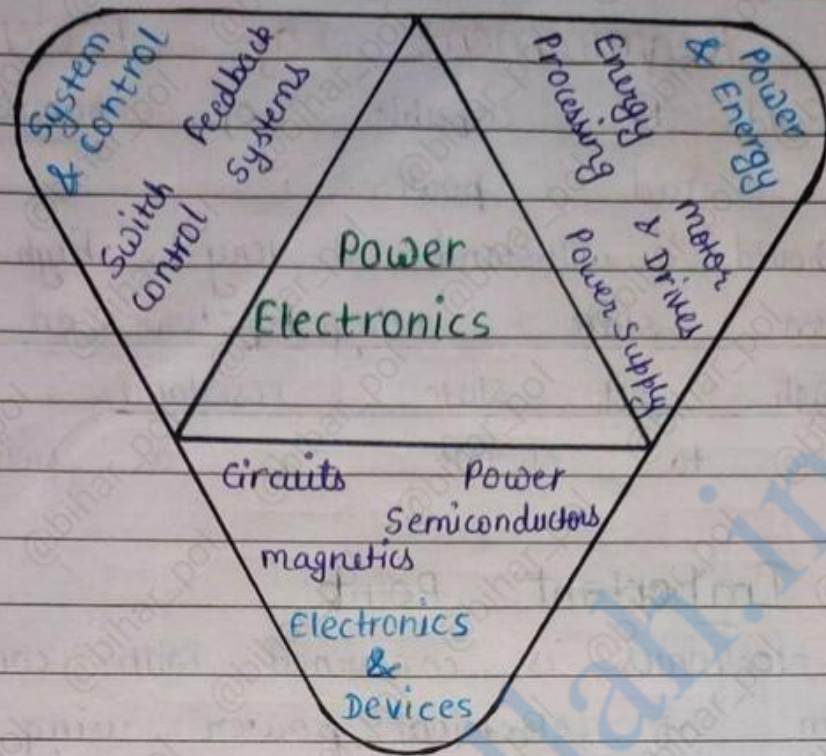 System
& Control
Feedback
Systems
Switch
Control
Energy
Processing
Power
& Energy
Motor
& Drives
Power Supply
Power
Electronics
Circuits
Power
Semiconductors
magnetics
Electronics
&
Devices
@bihar_pol
llah.in